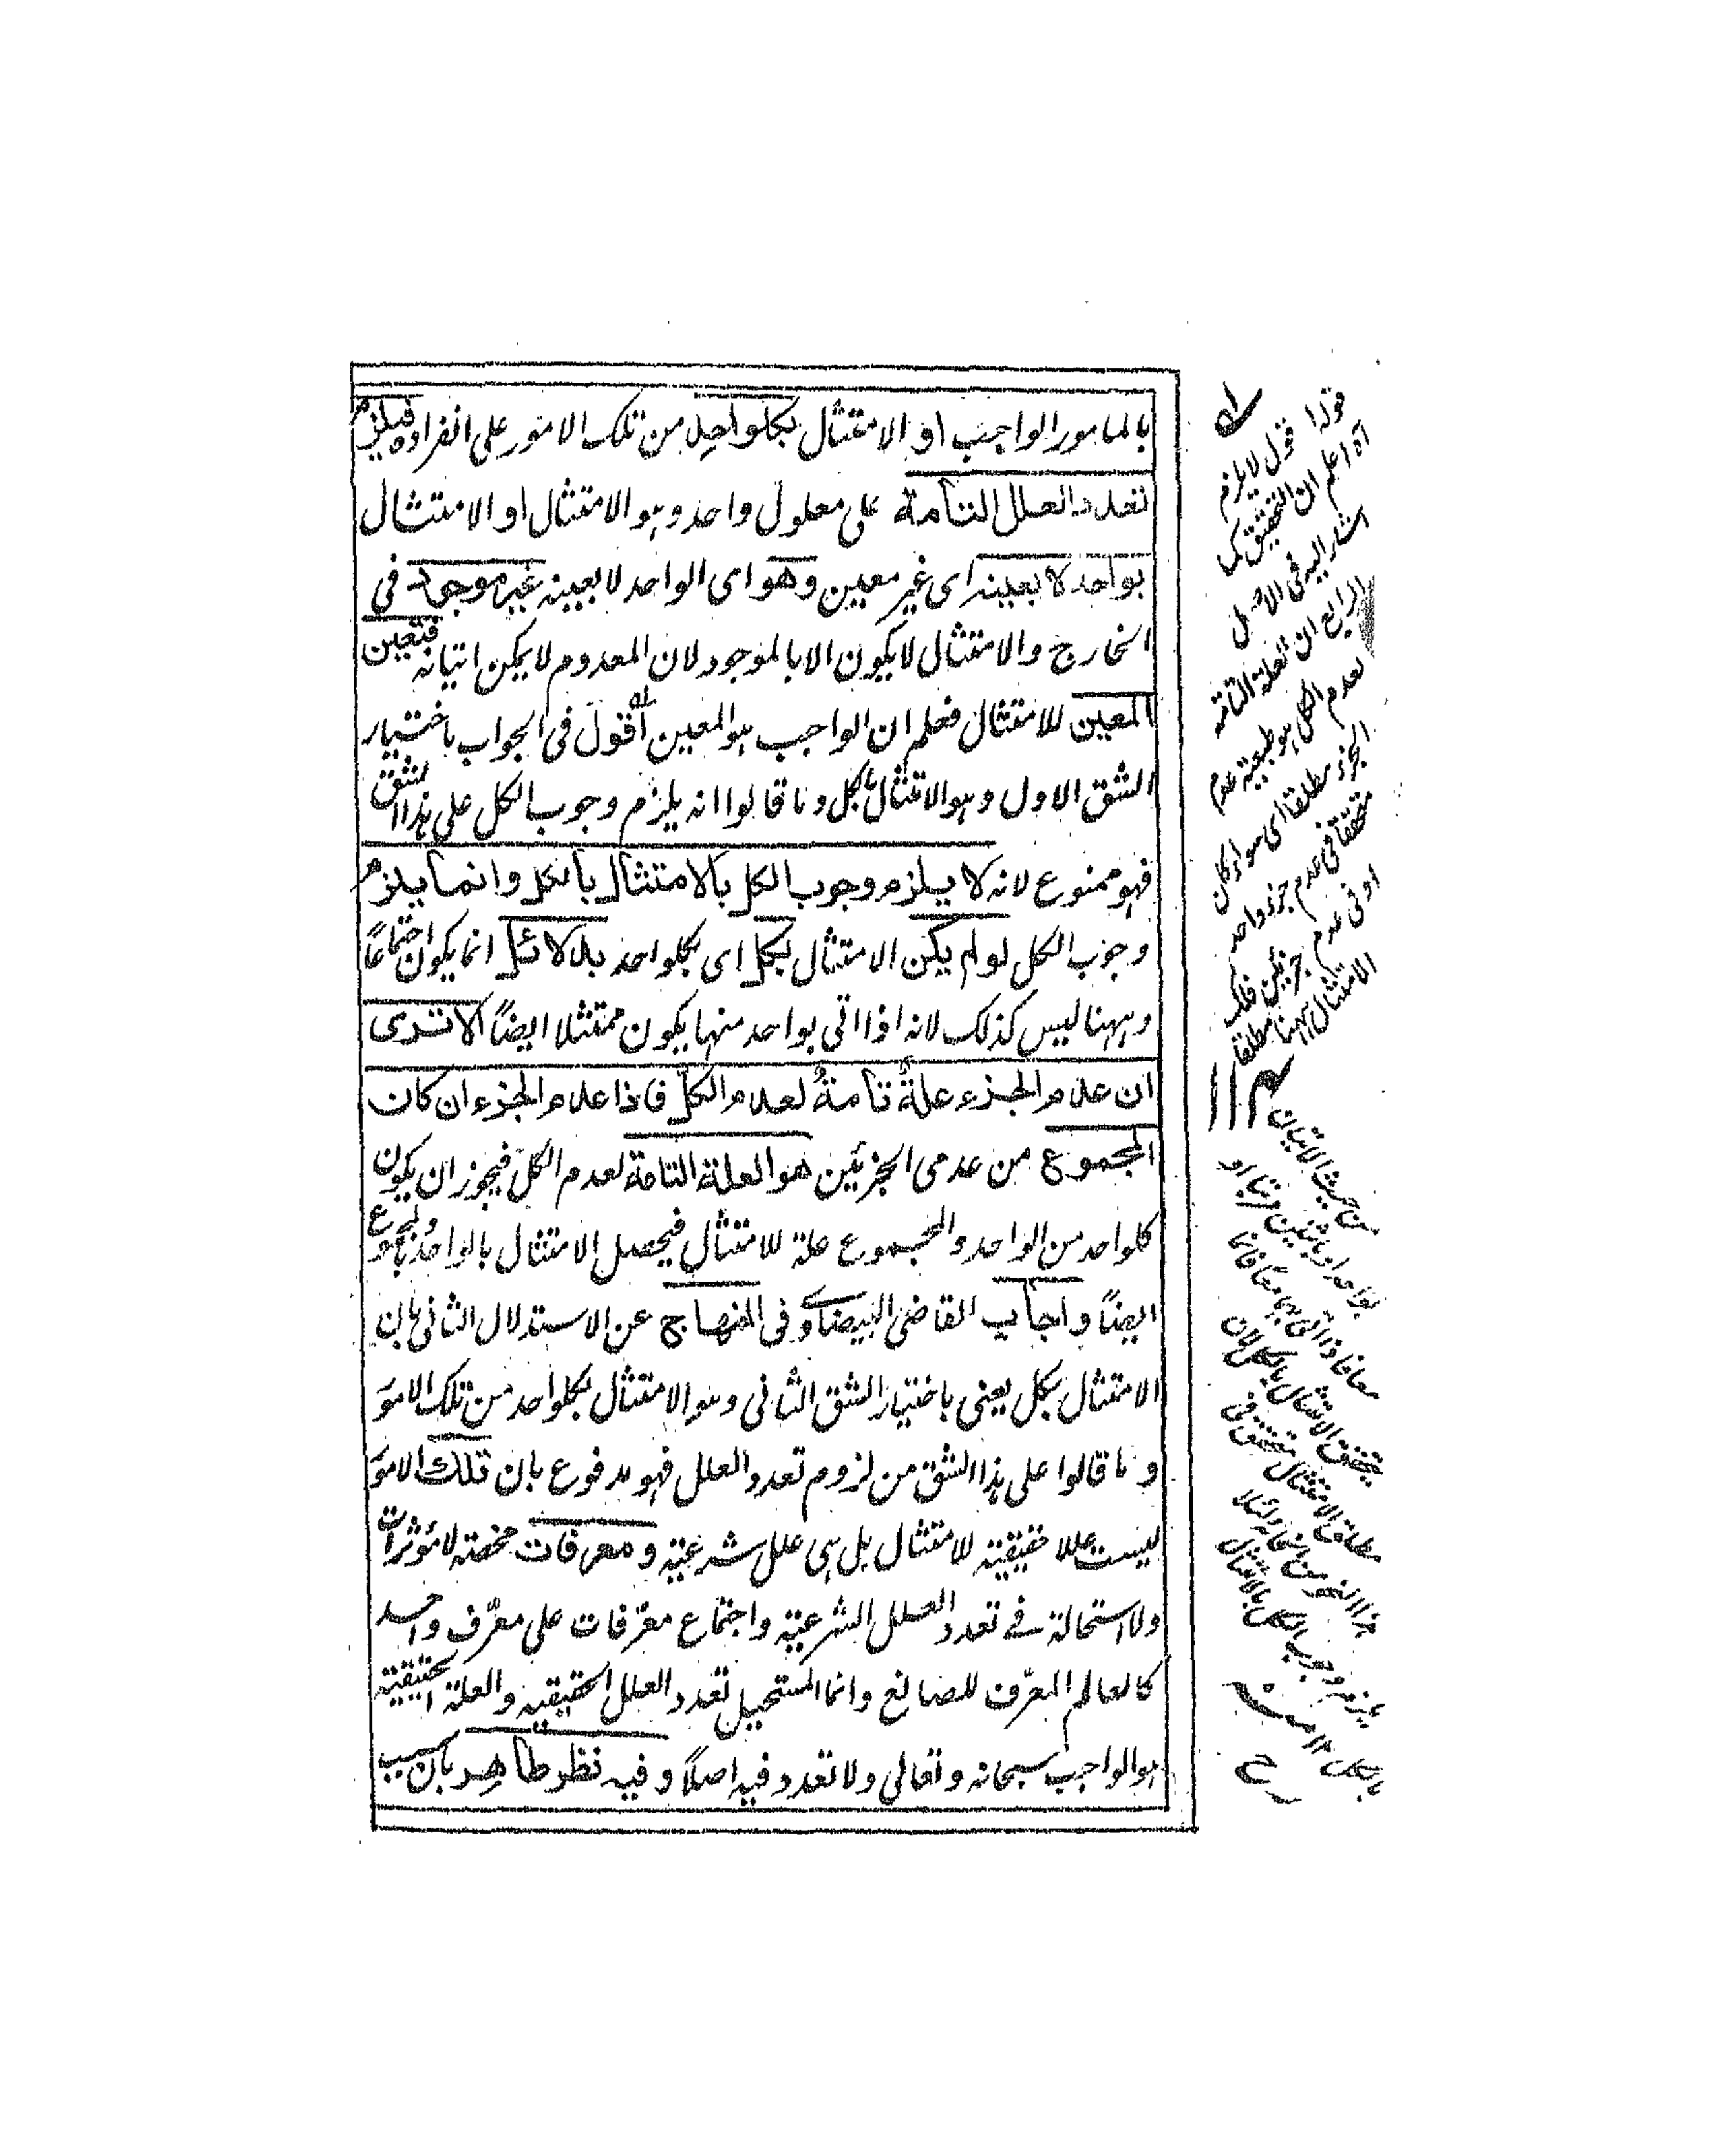 بالمامور الواجب او الامتثال بكلواحد من تلك الامور على انفراده فيلزم
تعدد العلل التامة على معلول واحد وهو الامتثال او الامتثال
بواحد لا بعينه اى غير معين وهو اى الواحد لا بعينه غير موجود فى
الخارج والامتثال لا يكون الا بالموجود لان المعدوم لا يمكن اتيانه فتعين
المعين للامتثال فعلم ان الواجب هو المعين اقول فى الجواب باختيار
الشق الاول وهو الامتثال بالكل وما قالوا انه يلزم وجوب الكل على هذا الشق
فهو ممنوع لانه لا يلزم وجوب الكل بالامتثال بالكل وانما يلزم
وجوب الكل لو لم يكن الامتثال بكل اى بكلواحد بدلا كل انما يكون اجتماعاً
وههنا ليس كذلك لانه اذا اتى بواحد منها يكون ممتثلا ايضاً الا ترى
ان عدم الجزء علةٌ تامةٌ لعدم الكل فاذا عدم الجزء ان كان
المجموع من عدمى الجزئين هو العلة التامة لعدم الكل فيجوز ان يكون
كلواحد من الواحد والمجموع علة للامتثال فيحصل الامتثال بالواحد وبالمجموع
ايضاً واجاب القاضى البيضاوى فى المنهاج عن الاستدلال الثانى بان
الامتثال بكل يعنى باختيار الشق الثانى وهو الامتثال بكلواحد من تلك الامور
وما قالوا على هذا الشق من لزوم تعدد العلل فهو مدفوع بان تلك الامور
ليست عللا حقيقية للامتثال بل هى علل شرعية ومعرفات محضة لا مؤثرات
ولا استحالة فى تعدد العلل الشرعية واجتماع معرّفات على معرَّف واحد
كالعالم المعرّف للصانع وانما المستحيل تعدد العلل الحقيقية والعلة الحقيقية
هو الواجب سبحانه وتعالى ولا تعدد فيه اصلاً وفيه نظر ظاهر بان
قوله اقول لا يلزم
آه اعلم ان التحقيق كما
اشار اليه فى الاصل
الرابع ان العلة التامة
لعدم الكل هو طبيعة عدم
الجزء مطلقا اى سواء كان
متحققا فى عدم جزء واحد
او فى عدم جزئين فلك
الامتثال ههنا مطلقا
من حيث الاتيان
بواحد او باثنين
معا فاذا اتى بها معا
يتحقق الامتثال بالكل لان
مطلق الامتثال متحقق فى
يلزم وجوب الكل بالامتثال
بالكل ١٢